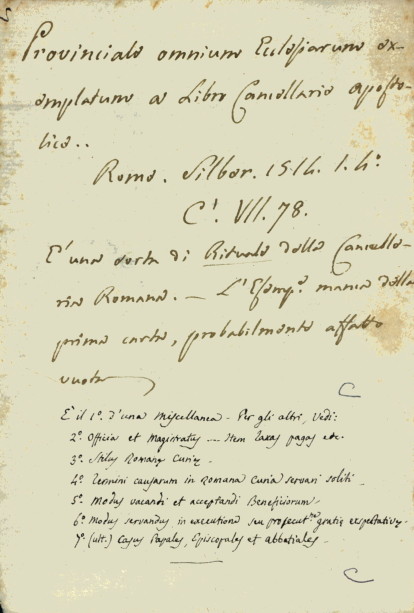 Provinciale omnium Ecclesiarum ex-
emplatum a Libro Cancellarie aposto-
lice..
Rome. Silber. 1514. I. 4°.
C'. VII. 78.
E' una sorta di Rituale della Cancelle-
ria Romana. — L'Esemp.° manca della
prima carta, probabilmente affatto
vuota
E' il 1°. d'una miscellanea - Per gli altri, vedi:
2°. Officia et Magistratus — Item taxas pagas etc.
3°. Stilus Romanę Curię -
4°. Termini causarum in Romana Curia servari soliti -
5°. Modus vacandi et acceptandi Beneficiorum -
6°. Modus servandus in executione seu prosecut.ne gratię expectativę -
7°. (ult.) Casus Papales, Episcopales et abbatiales -